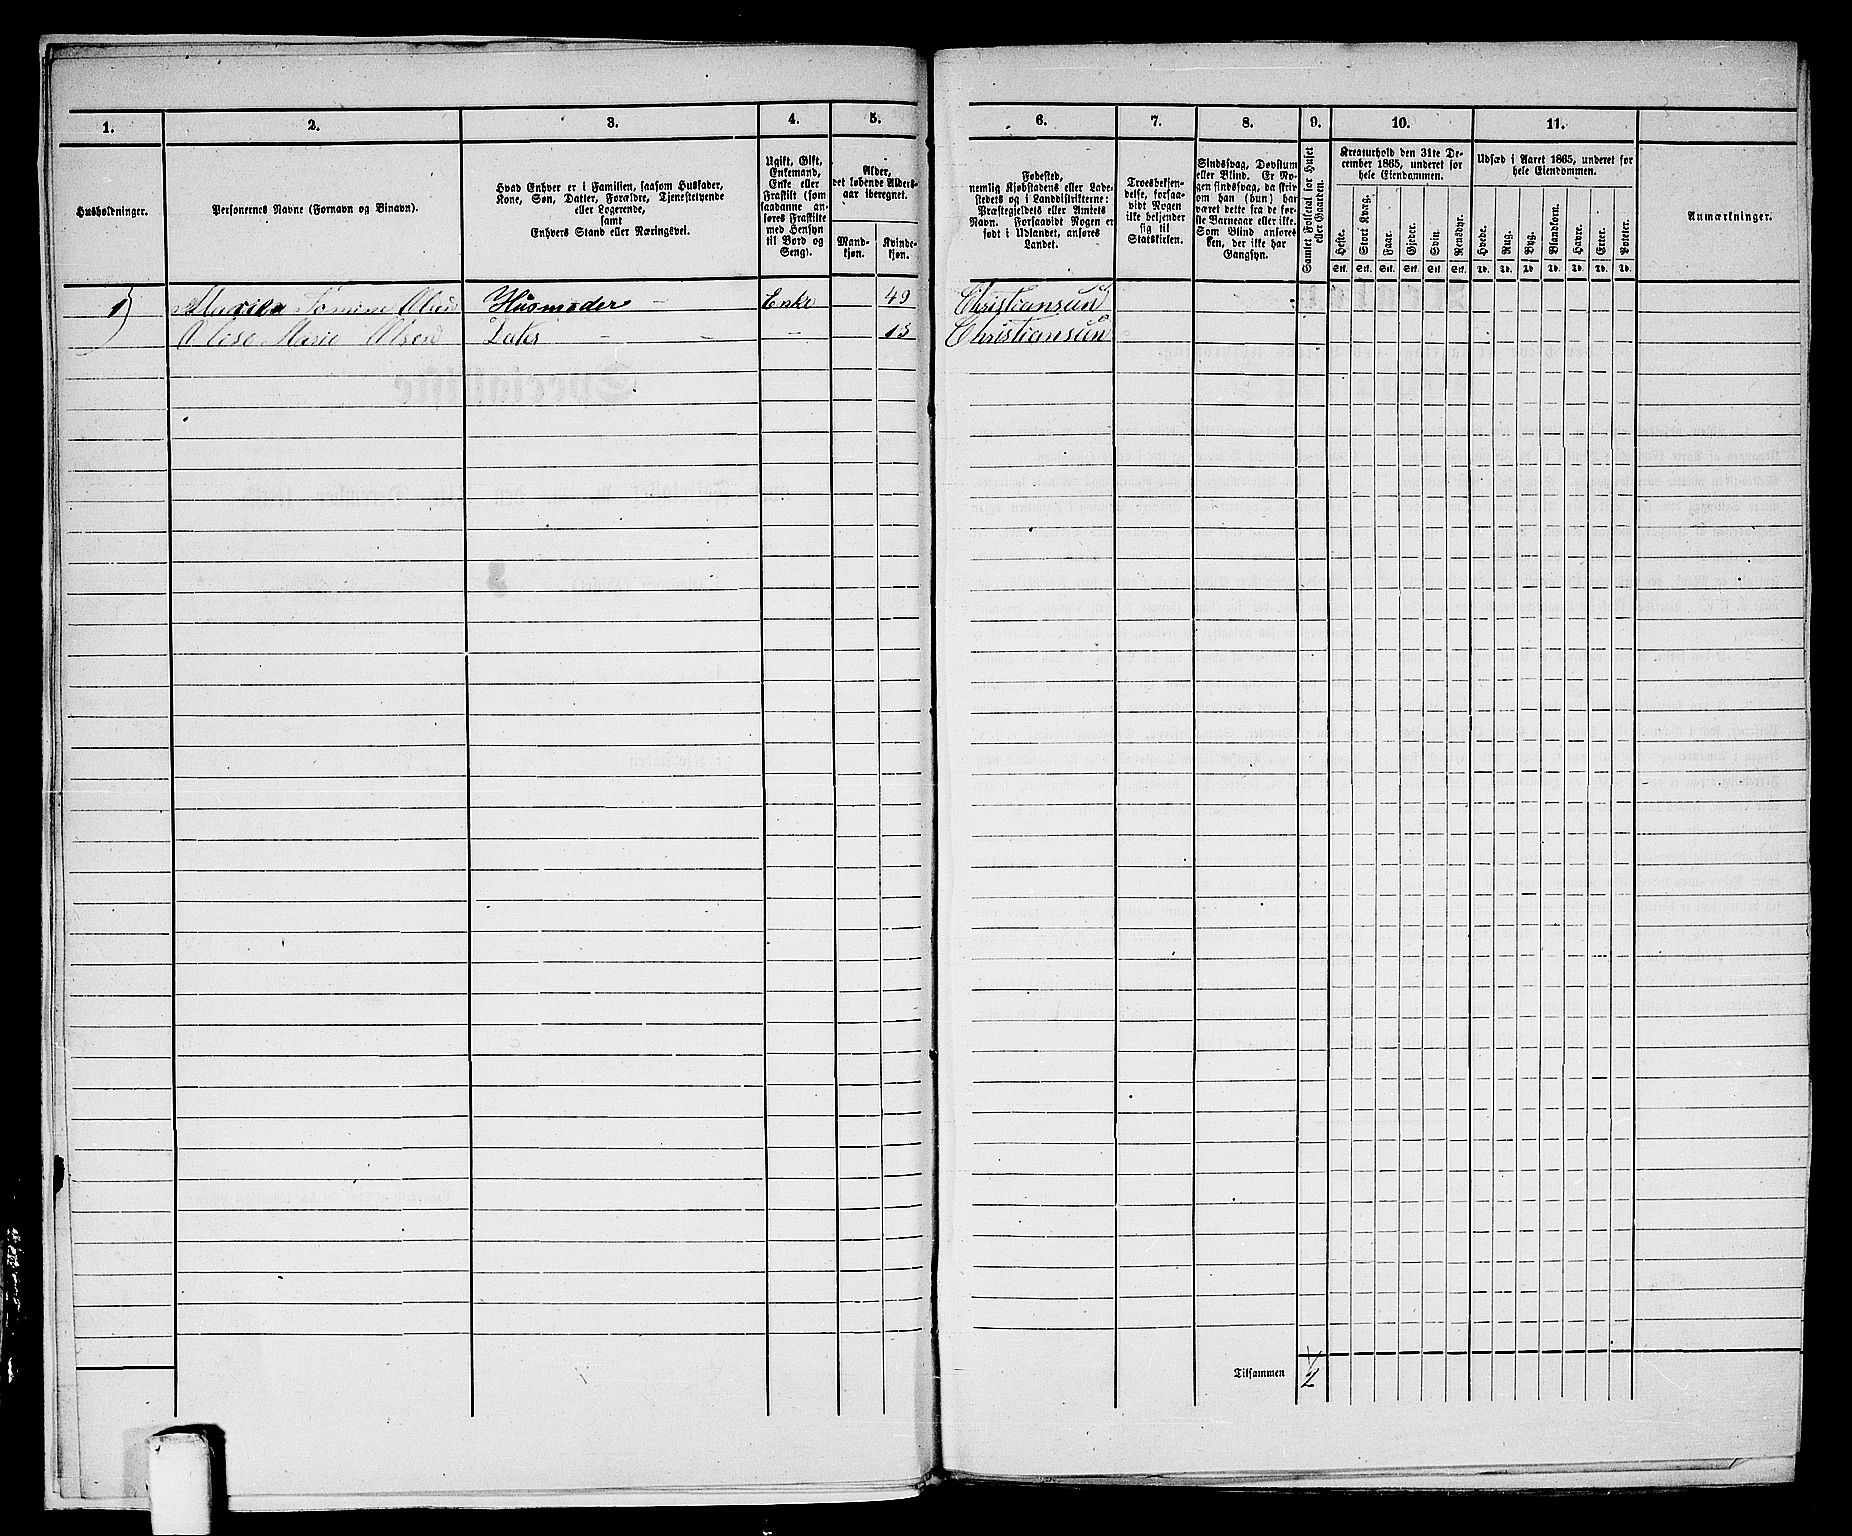 1. 2. 3. 4. 5. 6. 7. 8. 9. 10. 11.
Husholdninger.
Personernes Navne (Fornavn og Binavn).
Hvad Enhver er i Familien, saasom Husfader,
Kone, Søn, Datter, Forældre, Tjenestetyende
eller Logerende,
samt
Enhvers Stand eller Næringsvei.
Ugift, Gift,
Enkemand,
Enke eller
Fraskilt (som
saadanne an-
føres Fraskilte
med Hensyn
til Bord og
Seng).
Alder,
det løbende Alders-
aar iberegnet.
Mand-
kjøn.
Kvinde-
kjøn.
Fødested,
nemlig Kjøbstadens eller Lade-
stedets og i Landdistrikterne:
Præstegjeldets eller Amtets
Navn. Forsaavidt Nogen er
født i Udlandet, anføres
Landet.
Troesbekjen-
delse, forsaa-
vidt Nogen
ikke bekjender
sig til
Statskirken.
Sindssvag, Døvstum
eller Blind. Er No-
gen sindssvag, da skriv
om han (hun) har
været dette fra de før-
ste Barneaar eller ikke.
Som Blind anføres
ken, der ikke har
Gangsyn.
Samlet Folketal for Huset
eller Gaarden.
Kreaturhold den 31te De-
cember 1865, underet for
hele Eiendommen.
Heste. Stort Kvæg. Faar. Gjeder. Svin. Rensdyr.
Stk. Stk. Stk. Stk. Stk. Stk.
Udsæd i Aaret 1865, underet for
hele Eiendommen.
Hvede. Rug. Byg. Blandkorn. Havre. Erter. Poteter.
Td. Td. Td. Td. Td. Td. Td.
Anmærkninger.
1) Olsen Husmoder Enke 49 Christiansund
Marie Olsen Datter 13 Christiansund
Tilsammen 2